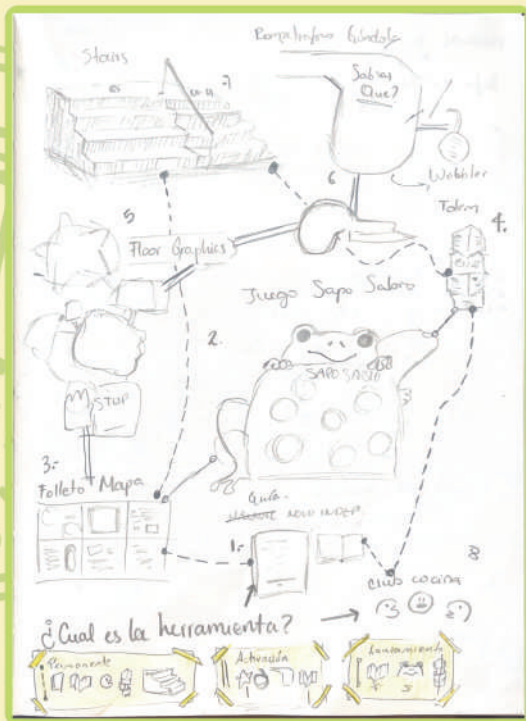 Stairs
Rompetráfico Góndola
Sabías
Que?
7
Wobbler
6
Totem
4.
5
Floor Graphics
Juego Sapo Sabio
2.
SAPO SABIO
STOP
3.-
Folleto Mapa
Guía.
1.-
8
Club cocina
¿Cual es la herramienta?
Permanente
Activación
Lanzamiento